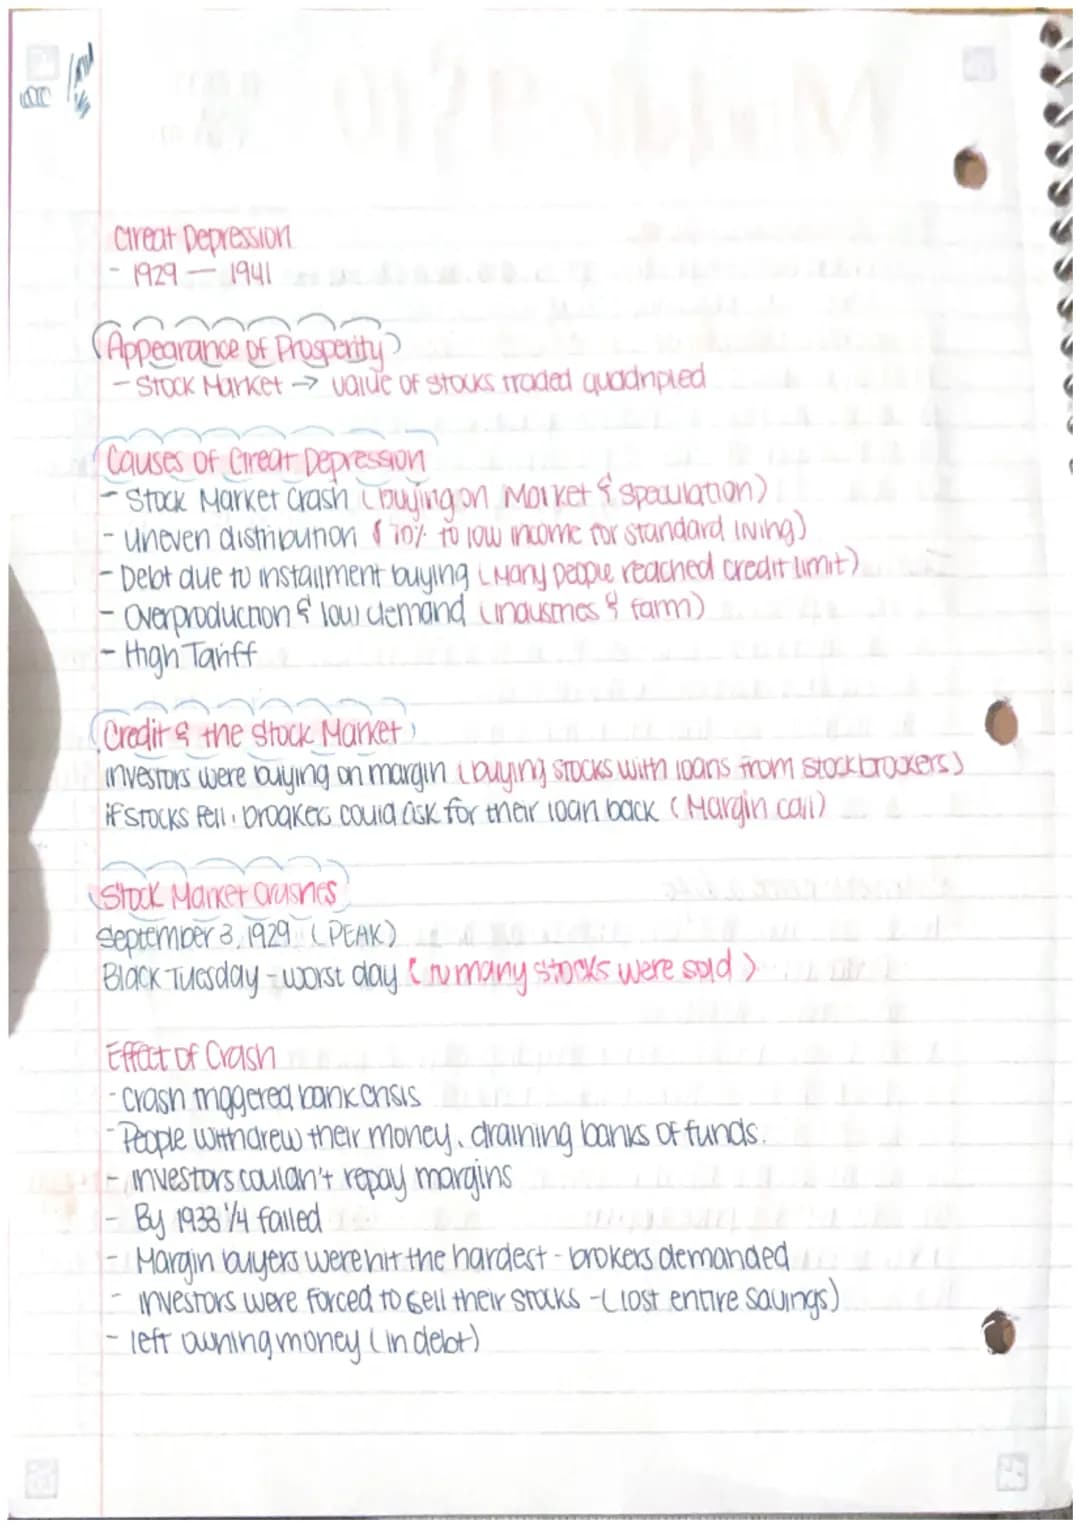 Great Depression
- 1929 — 1941
Appearance of Prosperity
- Stock Market → value of stocks traded quadripled
Causes of Great Depression
- Stock Market Crash (buying on Market & speculation)
- uneven distribution (70% to low income for standard living)
- Debt due to installment buying (Many people reached credit limit)
- Overproduction & low demand (industries & farm)
- High Tariff
Credit & the Stock Market
investors were buying on margin (buying stocks with loans from stockbrookers)
if stocks fell, broakers could ask for their loan back (Margin call)
Stock Market Crashes
September 3, 1929 (PEAK)
Black Tuesday - worst day (to many stocks were sold)
Effect of Crash
- crash triggered bank crisis
- People withdrew their money, draining banks of funds.
- investors couldn't repay margins
- By 1933 1/4 failed
- Margin buyers were hit the hardest - brokers demanded
- investors were forced to sell their stocks - (lost entire savings)
- left owning money (in debt)